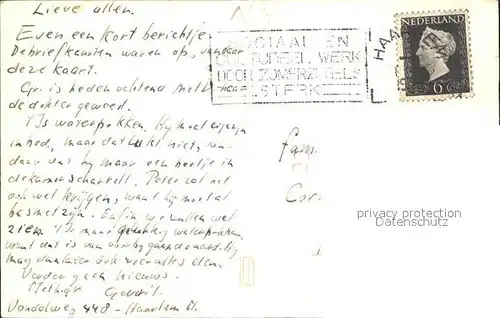 Lieve allen.
Even een kort berichtje.
De briefkaarten waren op, vandaar
deze kaart.
Gr. is heden ochtend met
de dokter geweest.
't Is waterpokken. Hij moet eigenlijk
in bed, maar dat lukt niet, van
daar dat hij maar een beetje in
de kamer scharrelt. Peter zal het
ook wel krijgen, want hij moet al
besmet zijn. Enfin we zullen wel
zien. 't Is maar gelukkig waterpokken,
want dat is van voorbijgaande aard. Hij
mag dan later ook weer alles doen.
Verder geen nieuws.
Met
Vondelweg 448 - Haarlem N.
SOCIAAL EN
CULTUREEL WERK
DOOR ZOMERZEGELS
STERK
HAA
NEDERLAND
6 C
Fam.
Cor
privacy protection
Datenschutz